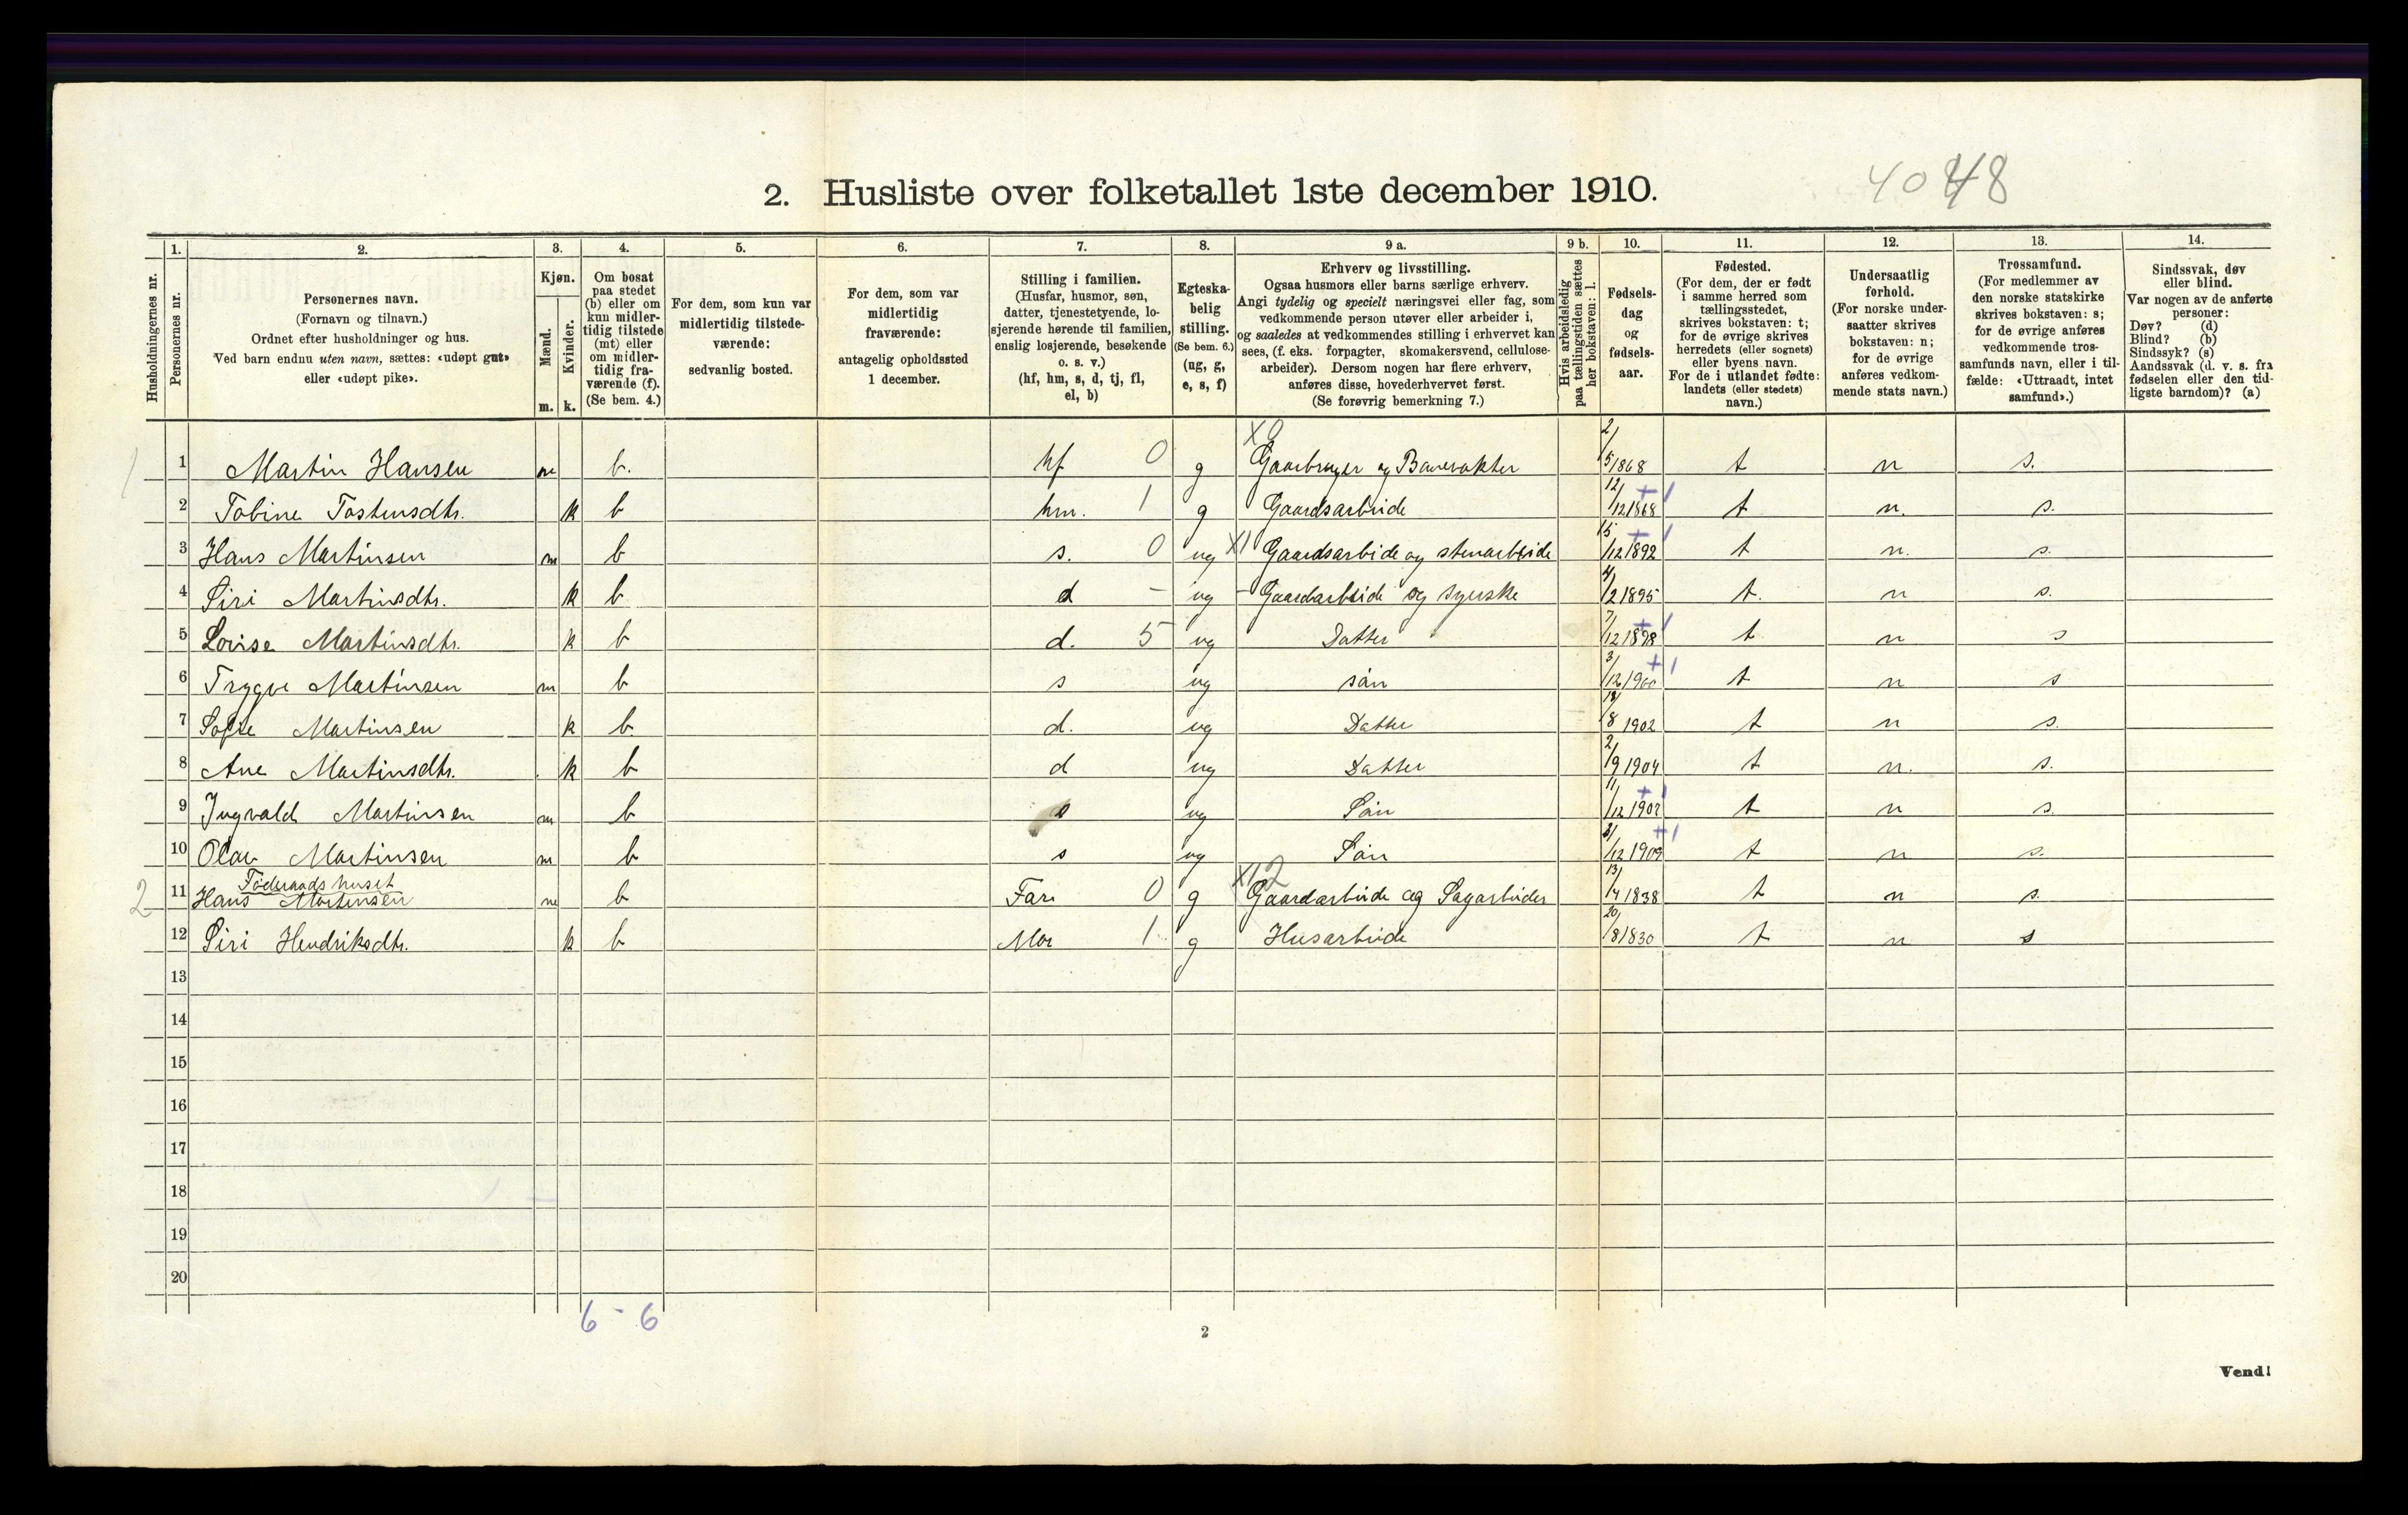 2. Husliste over folketallet 1ste december 1910.
4048
1. 2. 3. 4. 5. 6. 7. 8. 9 a. 9 b. 10. 11. 12. 13. 14.
Husholdningernes nr.
Personernes nr.
Personernes navn.
(Fornavn og tilnavn.)
Ordnet efter husholdninger og hus.
Ved barn endnu uten navn, sættes: «udøpt gut»
eller «udøpt pike».
Kjøn.
Mænd.
Kvinder.
m. k.
Om bosat
paa stedet
(b) eller om
kun midler-
tidig tilstede
(mt) eller
om midler-
tidig fra-
værende (f).
(Se bem. 4.)
For dem, som kun var
midlertidig tilstede-
værende:
sedvanlig bosted.
For dem, som var
midlertidig
fraværende:
antagelig opholdssted
1 december.
Stilling i familien.
(Husfar, husmor, søn,
datter, tjenestetyende, lo-
sjerende hørende til familien,
enslig losjerende, besøkende
o. s. v.)
(hf, hm, s, d, tj, fl,
el, b)
Egteska-
belig
stilling.
(Se bem. 6.)
(ug, g,
e, s, f)
Erhverv og livsstilling.
Ogsaa husmors eller barns særlige erhverv.
Angi tydelig og specielt næringsvei eller fag, som
vedkommende person utøver eller arbeider i,
og saaledes at vedkommendes stilling i erhvervet kan
sees, (f. eks. forpagter, skomakersvend, cellulose-
arbeider). Dersom nogen har flere erhverv,
anføres disse, hovederhvervet først.
(Se forøvrig bemerkning 7.)
Hvis arbeidsledig
paa tællingstiden sættes
her bokstaven: l.
Fødsels-
dag
og
fødsels-
aar.
Fødested.
(For dem, der er født
i samme herred som
tællingsstedet,
skrives bokstaven: t;
for de øvrige skrives
herredets (eller sognets)
eller byens navn.
For de i utlandet fødte:
landets (eller stedets)
navn.)
Undersaatlig
forhold.
(For norske under-
saatter skrives
bokstaven: n;
for de øvrige
anføres vedkom-
mende stats navn.)
Trossamfund.
(For medlemmer av
den norske statskirke
skrives bokstaven: s;
for de øvrige anføres
vedkommende tros-
samfunds navn, eller i til-
fælde: «Uttraadt, intet
samfund».)
Sindssvak, døv
eller blind.
Var nogen av de anførte
personer:
Døv? (d)
Blind? (b)
Sindssyk? (s)
Aandssvak (d. v. s. fra
fødselen eller den tid-
ligste barndom)? (a)
1 1 Martin Hansen m b. hf 0 g X0 Gaarbruger og Banevakter 2/5 1868 t n s.
2 Tobine Tostensdtr. k b hm. 1 g Gaardsarbeide 12/12 1868 + 1 t n. s.
3 Hans Martinsen m b s. 0 ug X1 Gaardsarbeide og stenarbeide 15/12 1892 + 1 t n. s.
4 Siri Martinsdtr. k b d - ug - Gaardarbeide og syerske 4/2 1895 t. n s.
5 Lovise Martinsdtr. k b d. 5 ug Datter 7/12 1898 + 1 t n s
6 Trygve Martinsen m b s ug sån 3/12 1900 + 1 t n s
7 Sofie Martinsen k b d. ug Datter /8 1902 t n s.
8 Ane Martinsdtr. k b d ug Datter 2/9 1904 t n. s.
9 Ingvald Martinsen m b s ug Sån 11/12 1907 + 1 t n s.
10 Olav Martinsen m b s ug Sån /12 1909 + 1 t n s.
Føderaads huset
2 11 Hans Martinsen m b Far 0 g X12 Gaardarbeide og Sagarbeider 13/4 1838 t n s.
12 Siri Hendriksdtr. k b Mor 1 g Husarbeide 20/8 1830 t n s
13
14
15
16
17
18
19
20
6 - 6
2
Vend!